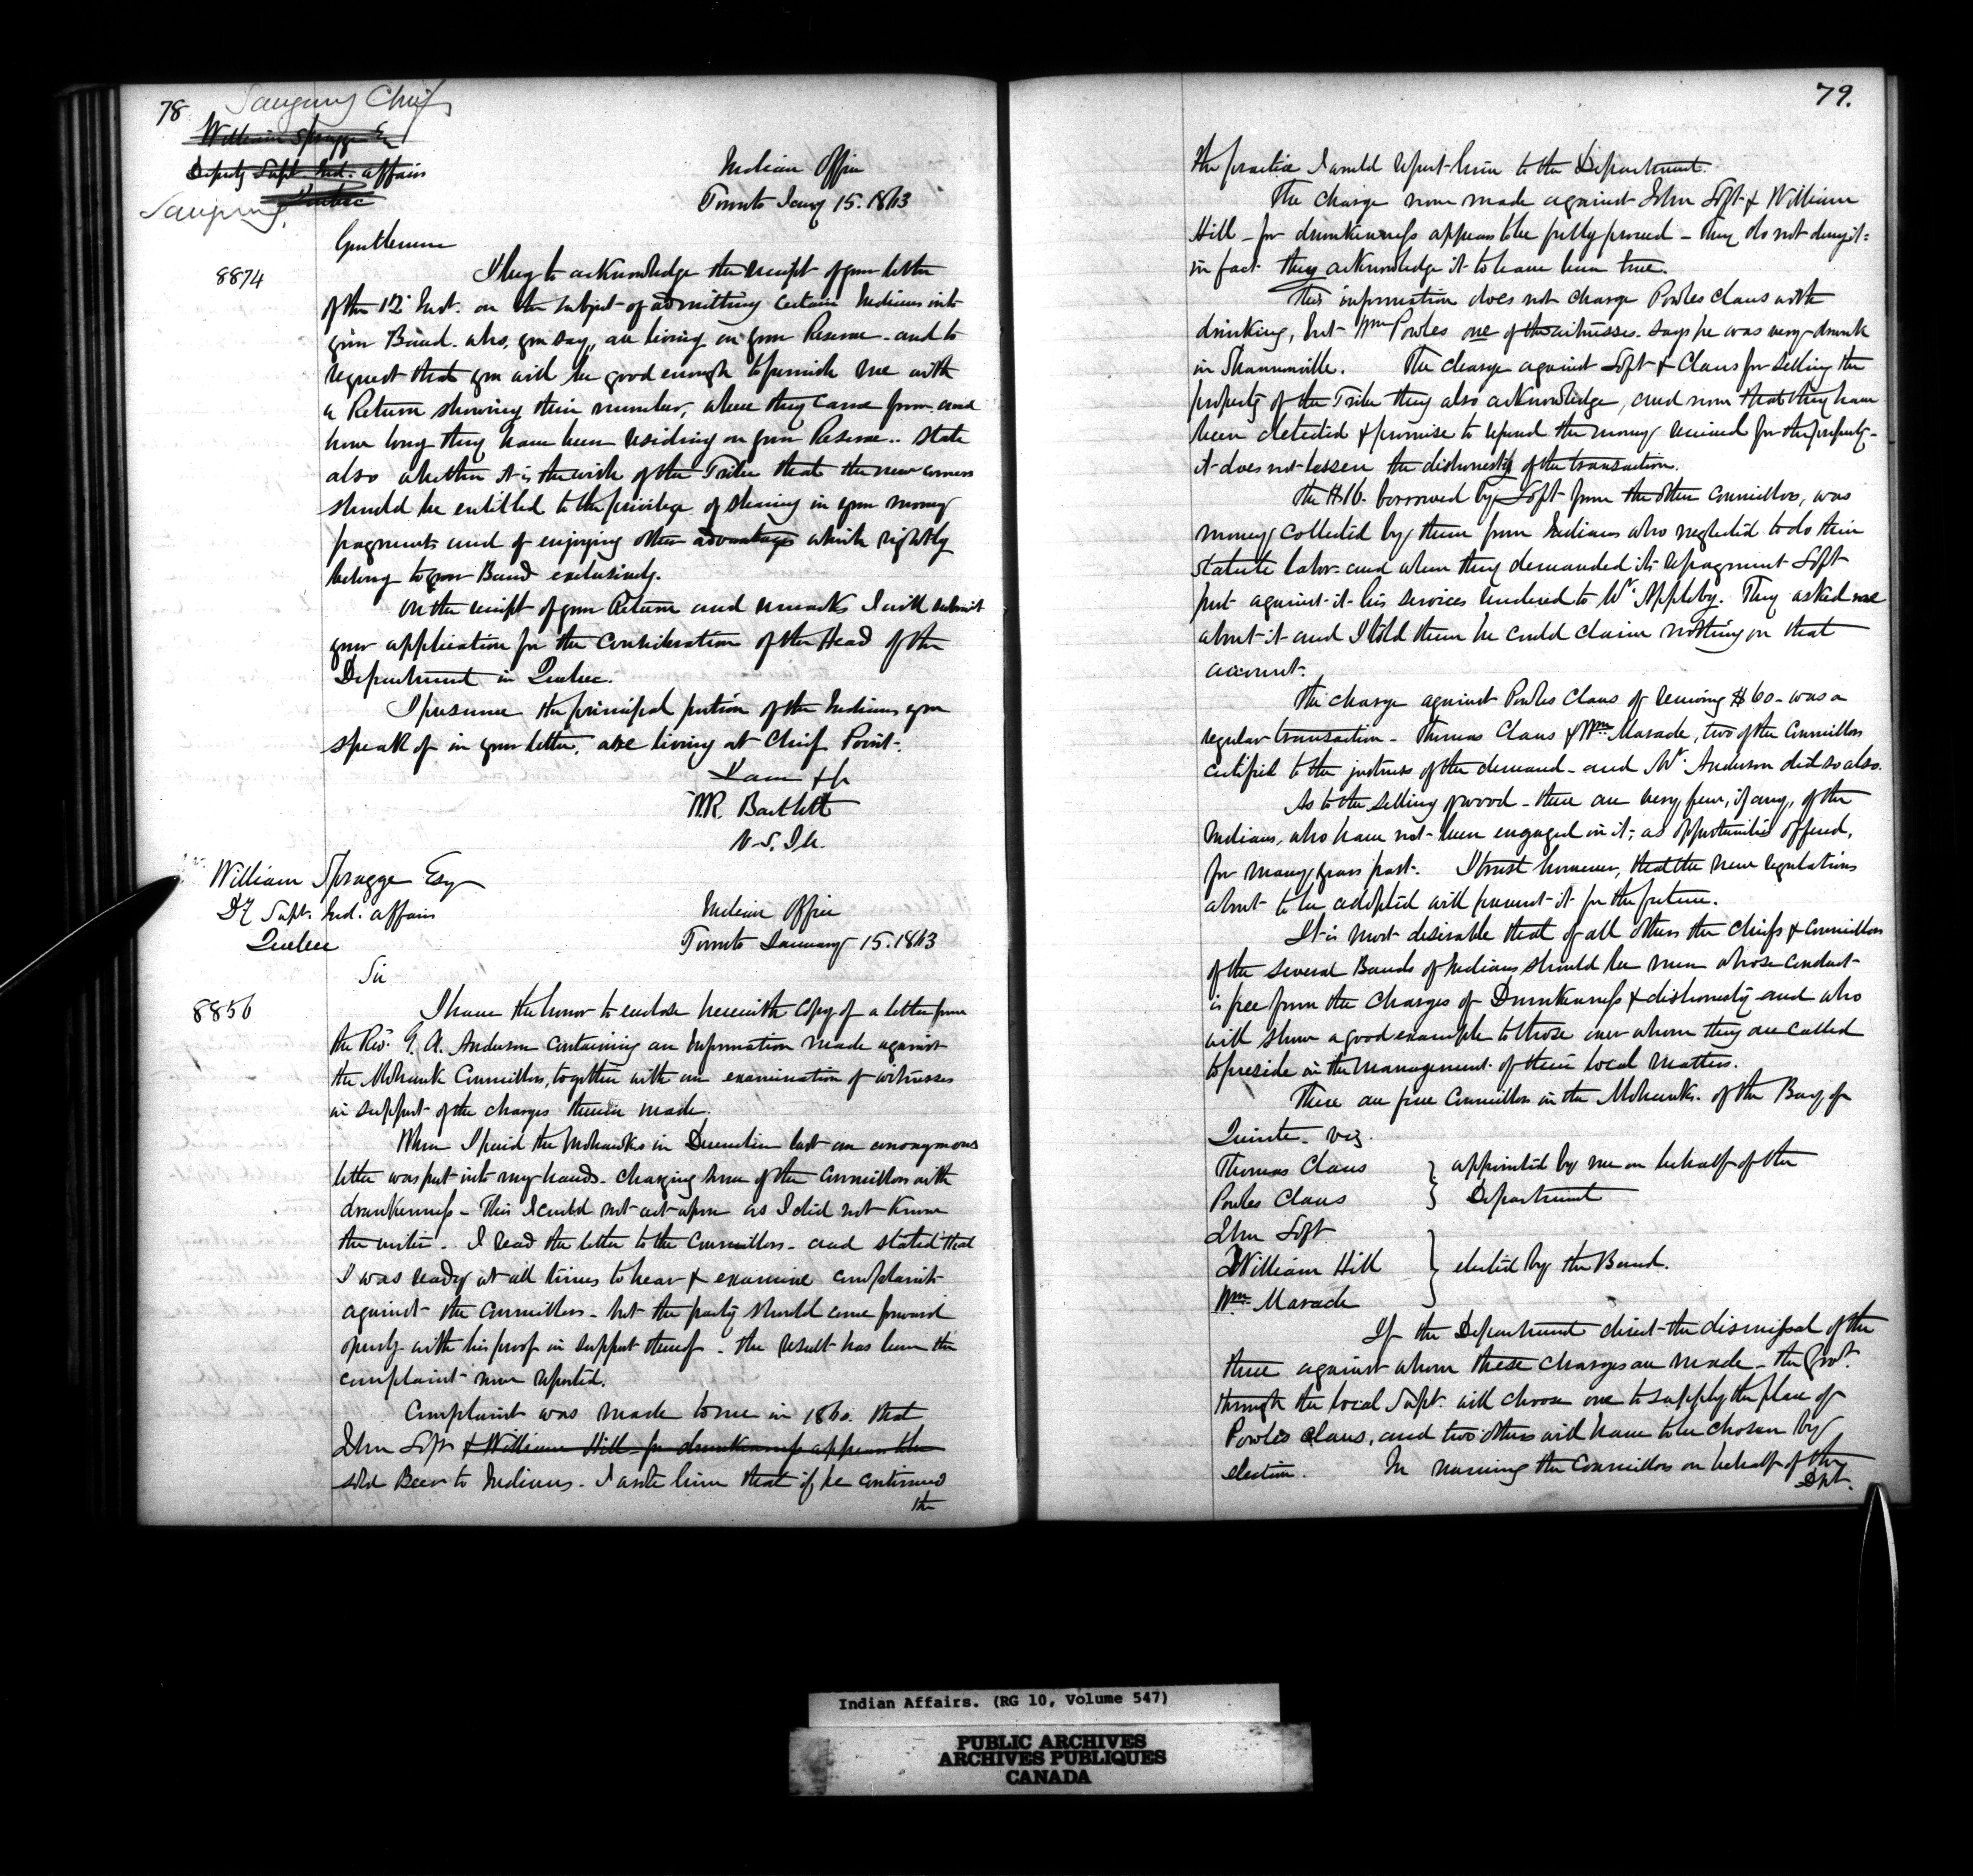 78
Saugeeng Chiefs
William Spragge Esq
Deputy Supt. Ind. affairs
Quebec
Saugeeng.
Indian Office
Toronto Jany 15. 1863
Gentlemen
8874
I beg to acknowledge the receipt of your letter
of the 12 Inst. on the subject of admitting certain Indians into
your Band. who, you say, are living on your Reserve. and to
request that you will be good enough to furnish me with
a Return showing their number, where they came from and
how long they have been residing on your Reserve.. state
also whether it is the wish of the Tribe that the new comers
should be entitled to the privilege of sharing in your money
payments and of enjoying other advantages which rightly
belong to your Band exclusively.
On the receipt of your Return and remarks I will submit
your application for the consideration of the Head of the
Department in Quebec.
I presume the principal portion of the Indians you
speak of in your letter, are living at Chief Point.
I am &c
W.R. Bartlett
V.S.I.A.
William Spragge Esqr
Dy Supt. Ind. affairs
Quebec
Indian Office
Toronto January 15. 1863
Sir
8856
I have the honor to enclose herewith copy of a letter from
the Rev. G. A. Anderson containing an Information made against
the Mohawk Councillors, together with an examination of witnesses
in support of the charges therein made.
When I paid the Mohawks in December last an anonymous
letter was put into my hands. charging some of the Councillors with
drunkenness - This I could not act upon as I did not know
the writer. I read the letter to the Councillors - and stated that
I was ready at all times to hear & examine complaints
against the Councillors - but the party should come forward
openly with his proof in support thereof - the result has been the
complaint now reported.
Complaint was made to me in 1860. that
John Loft & William Hill for drunkenness appears to be
sold Beer to Indians. I wrote him that if he continued
the
79.
the practice I would report him to the Department.
The charge now made against John Loft & William
Hill - for drunkenness appears to be fully proved - They do not deny it =
in fact they acknowledge it to have been true.
This information does not charge Powles Claus with
drinking, but Wm Powles one of the witnesses. says he was very drunk
in Shannonville. The charge against Loft & Claus for selling the
property of the Tribe they also acknowledge, and now that they have
been detected & promise to refund the money received for the property -
it does not lessen the dishonesty of the transaction.
The $16. borrowed by Loft from the other Councillors, was
money collected by them from Indians who neglected to do their
statute labor. and when they demanded its repayment Loft
put against it his services rendered to Mr. Appleby. They asked me
about it and I told them he could claim nothing on that
account.
The charge against Powles Claus of receiving $60 - was a
regular transaction - Thomas Claus & Wm Maracle, two of the Councillors
certified to the justness of the demand - and Mr. Anderson did so also.
As to the selling of wood - there are very few, if any, of the
Indians, who have not been engaged in it, as opportunities offered,
for many years past. I trust however, that the new regulations
about to be adopted will prevent it for the future.
It is most desirable that of all others the Chiefs & Councillors
of the several Bands of Indians should be men whose conduct
is free from the charges of Drunkenness & dishonesty and who
will show a good example to those over whom they are called
to preside in the management of their local matters.
There are five Councillors in the Mohawks of the Bay of
Quinte - viz.
Thomas Claus } appointed by me on behalf of the
Powles Claus } Department
John Loft
William Hill } elected by the Band.
Wm Maracle
If the Department direct the dismissal of the
three against whom these charges are made - the Govt.
through the local Supt. will choose one to supply the place of
Powles Claus, and two others will have to be chosen by
election. In naming the Councillors on behalf of the
Dpt.
Indian Affairs. (RG 10, Volume 547)
PUBLIC ARCHIVES
ARCHIVES PUBLIQUES
CANADA